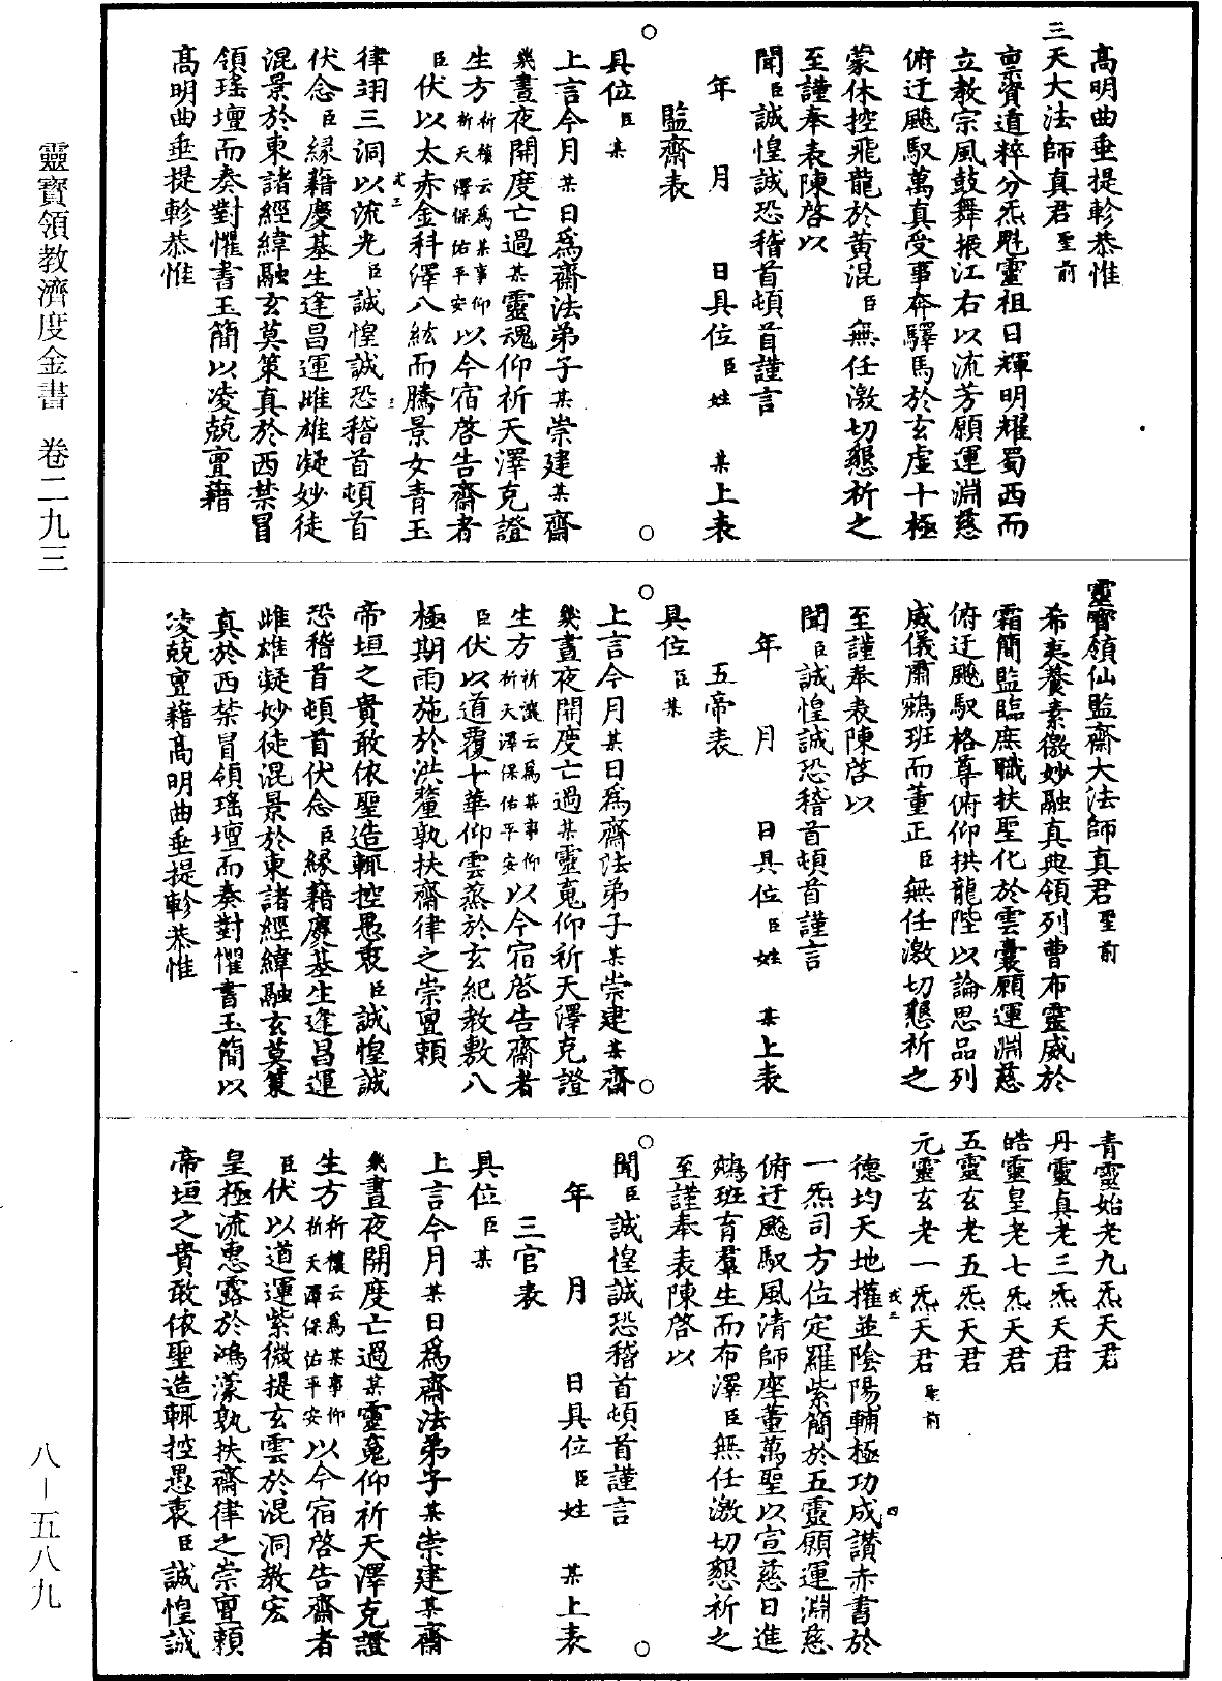 靈寶領教濟度金書 卷二九三
八－五八九
高明曲垂提軫恭惟
三天大法師真君聖前
稟資道粹分炁毘靈祖日輝明耀蜀西而
立教宗風鼓舞振江右以流芳願運淵慈
俯迂飈馭萬真受事奔驛馬於玄虛十極
蒙休控飛龍於黃混臣無任激切懇祈之
至謹奉表陳啓以
聞臣誠惶誠恐稽首頓首謹言
年 月 日具位臣姓 某上表
監齋表
具位臣某
上言今月某日爲齋法弟子某崇建某齋
幾晝夜開度亡過某靈魂仰祈天澤克證
生方祈禳云爲某事仰祈天澤保佑平安以今宿啓告齋者
臣伏以太赤金科繹八絃而騰景女青玉
律翊三洞以流光臣誠惶誠恐稽首頓首
伏念臣緣藉慶基生逢昌運雌雄凝妙徒
混景於東諸經緯融玄莫策真於西禁冒
領瑤壇而奏對懼書玉簡以凌兢亶藉
高明曲垂提軫恭惟
靈寶領仙監齋大法師真君聖前
希夷養素微妙融真典領列曹布靈威於
霜簡監臨庶職扶聖化於雲囊願運淵慈
俯迂飈馭格尊俯仰拱龍陛以論思品列
威儀肅鵷班而董正臣無任激切懇祈之
至謹奉表陳啓以
聞臣誠惶誠恐稽首頓首謹言
年 月 日具位臣姓 某上表
五帝表
具位臣某
上言今月某日爲齋法弟子某崇建某齋
幾晝夜開度亡過某靈䰟仰祈天澤克證
生方祈禳云爲某事仰祈天澤保佑平安以今宿啓告齋者
臣伏以道覆十華仰雲蒸於玄紀教敷八
極期雨施於洪釐孰扶齋律之崇亶賴
帝垣之貴敢依聖造輒控愚衷臣誠惶誠
恐稽首頓首伏念臣緣藉慶基生逢昌運
雌雄凝妙徒混景於東諸經緯融玄莫策
真於西禁冒領瑤壇而奏對懼書玉簡以
凌兢亶藉高明曲垂提軫恭惟
青靈始老九炁天君
丹靈真老三炁天君
皓靈皇老七炁天君
五靈玄老五炁天君
元靈玄老一炁天君聖前
德均天地權並陰陽輔極功成讚赤書於
一炁司方位定羅紫簡於五靈願運淵慈
俯迂飈馭風清師座董萬聖以宣慈日進
鵷班育羣生而布澤臣無任激切懇祈之
至謹奉表陳啓以
聞臣誠惶誠恐稽首頓首謹言
年 月 日具位臣姓 某上表
三官表
具位臣某
上言今月某日爲齋法弟子某崇建某齋
幾晝夜開度亡過某靈䰟仰祈天澤克證
生方祈禳云爲某事仰祈天澤保佑平安以今宿啓告齋者
臣伏以道運紫微提玄雲於混洞教宏
皇極流惠露於鴻濛孰扶齋律之崇亶賴
帝垣之貴敢依聖造輒控愚衷臣誠惶誠